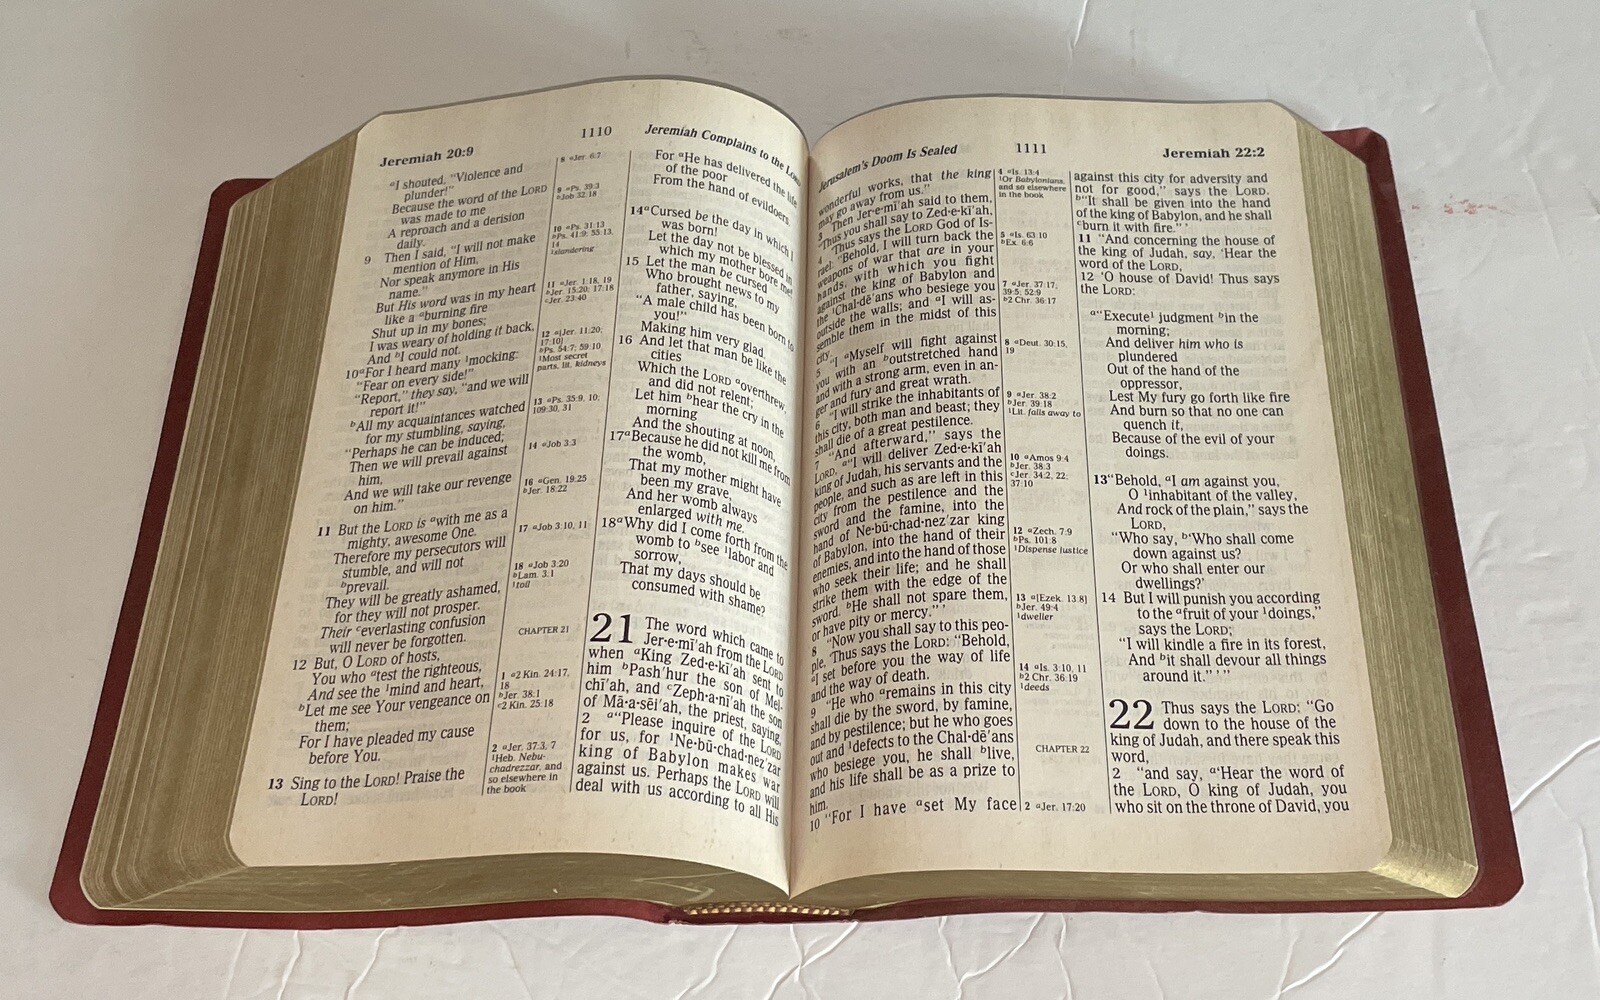 Jeremiah 20:9
1110
Jeremiah Complains to the LORD
ªI shouted, "Violence and
plunder!"
Because the word of the LORD
was made to me
A reproach and a derision
daily.
9 Then I said, "I will not make
mention of Him,
Nor speak anymore in His
name."
But His word was in my heart
like a ªburning fire
Shut up in my bones;
I was weary of holding it back,
And ᵇI could not.
10ªFor I heard many ¹mocking:
"Fear on every side!"
"Report," they say, "and we will
report it!"
ᵇAll my acquaintances watched
for my stumbling, saying,
"Perhaps he can be induced;
Then we will prevail against
him,
And we will take our revenge
on him."
11 But the LORD is ªwith me as a
mighty, awesome One.
Therefore my persecutors will
stumble, and will not
ᵇprevail.
They will be greatly ashamed,
for they will not prosper.
Their ᶜeverlasting confusion
will never be forgotten.
12 But, O LORD of hosts,
You who ªtest the righteous,
And see the ¹mind and heart,
ᵇLet me see Your vengeance on
them;
For I have pleaded my cause
before You.
13 Sing to the LORD! Praise the
LORD!
8 ªJer. 6:7
9 ªPs. 39:3
ᵇJob 32:18
10 ªPs. 31:13
ᵇPs. 41:9; 55:13,
14
¹slandering
11 ªJer. 1:18, 19
ᵇJer. 15:20; 17:18
ᶜJer. 23:40
12 ª[Jer. 11:20;
17:10]
ᵇPs. 54:7; 59:10
¹Most secret
parts, lit. kidneys
13 ªPs. 35:9, 10;
109:30, 31
14 ªJob 3:3
16 ªGen. 19:25
ᵇJer. 18:22
17 ªJob 3:10, 11
18 ªJob 3:20
ᵇLam. 3:1
¹toil
CHAPTER 21
1 ª2 Kin. 24:17,
18
ᵇJer. 38:1
ᶜ2 Kin. 25:18
2 ªJer. 37:3, 7
¹Heb. Nebu-
chadrezzar, and
so elsewhere in
the book
For ªHe has delivered the life
of the poor
From the hand of evildoers.
14ªCursed be the day in which I
was born!
Let the day not be blessed in
which my mother bore me!
15 Let the man be cursed
Who brought news to my
father, saying,
"A male child has been born to
you!"
Making him very glad.
16 And let that man be like the
cities
Which the LORD ªoverthrew,
and did not relent;
Let him ᵇhear the cry in the
morning
And the shouting at noon,
17ªBecause he did not kill me from
the womb,
That my mother might have
been my grave,
And her womb always
enlarged with me.
18ªWhy did I come forth from the
womb to ᵇsee ¹labor and
sorrow,
That my days should be
consumed with shame?
21 The word which came to
Jer·e·mī′ah from the LORD
when ªKing Zed·e·kī′ah sent to
him ᵇPash′hur the son of Mel-
chī′ah, and ᶜZeph·a·nī′ah the son
of Mā·a·sēi′ah, the priest, saying,
2 ª"Please inquire of the LORD
for us, for ¹Ne·bū·chad·nez′zar
king of Babylon makes war
against us. Perhaps the LORD will
deal with us according to all His
Jerusalem's Doom Is Sealed
1111
Jeremiah 22:2
wonderful works, that the king
may go away from us."
3 Then Jer·e·mī′ah said to them,
"Thus you shall say to Zed·e·kī′ah,
4 'Thus says the LORD God of Is-
rael: "Behold, I will turn back the
weapons of war that are in your
hands, with which you fight
against the king of Babylon and
the ¹Chal·dē′ans who besiege you
outside the walls; and ªI will as-
semble them in the midst of this
city.
5 "I ªMyself will fight against
you with an ᵇoutstretched hand
and with a strong arm, even in an-
ger and fury and great wrath.
6 "I will strike the inhabitants of
this city, both man and beast; they
shall die of a great pestilence.
7 "And afterward," says the
LORD, ª"I will deliver Zed·e·kī′ah
king of Judah, his servants and the
people, and such as are left in this
city from the pestilence and the
sword and the famine, into the
hand of Ne·bū·chad·nez′zar king
of Babylon, into the hand of their
enemies, and into the hand of those
who seek their life; and he shall
strike them with the edge of the
sword. ᵇHe shall not spare them,
or have pity or mercy." '
8 "Now you shall say to this peo-
ple, 'Thus says the LORD: "Behold,
ªI set before you the way of life
and the way of death.
9 "He who ªremains in this city
shall die by the sword, by famine,
and by pestilence; but he who goes
out and ¹defects to the Chal·dē′ans
who besiege you, he shall ᵇlive,
and his life shall be as a prize to
him.
10 "For I have ªset My face
4 ªIs. 13:4
¹Or Babylonians,
and so elsewhere
in the book
5 ªIs. 63:10
ᵇEx. 6:6
7 ªJer. 37:17;
39:5; 52:9
ᵇ2 Chr. 36:17
8 ªDeut. 30:15,
19
9 ªJer. 38:2
ᵇJer. 39:18
¹Lit. falls away to
10 ªAmos 9:4
ᵇJer. 38:3
ᶜJer. 34:2, 22;
37:10
12 ªZech. 7:9
ᵇPs. 101:8
¹Dispense justice
13 ª[Ezek. 13:8]
ᵇJer. 49:4
¹dweller
14 ªIs. 3:10, 11
ᵇ2 Chr. 36:19
¹deeds
CHAPTER 22
2 ªJer. 17:20
against this city for adversity and
not for good," says the LORD.
ᵇ"It shall be given into the hand
of the king of Babylon, and he shall
ᶜburn it with fire." '
11 "And concerning the house of
the king of Judah, say, 'Hear the
word of the LORD,
12 'O house of David! Thus says
the LORD:
ª"Execute¹ judgment ᵇin the
morning;
And deliver him who is
plundered
Out of the hand of the
oppressor,
Lest My fury go forth like fire
And burn so that no one can
quench it,
Because of the evil of your
doings.
13"Behold, ªI am against you,
O ¹inhabitant of the valley,
And rock of the plain," says the
LORD,
"Who say, ᵇ'Who shall come
down against us?
Or who shall enter our
dwellings?'
14 But I will punish you according
to the ªfruit of your ¹doings,"
says the LORD;
"I will kindle a fire in its forest,
And ᵇit shall devour all things
around it." ' "
22 Thus says the LORD: "Go
down to the house of the
king of Judah, and there speak this
word,
2 "and say, ª'Hear the word of
the LORD, O king of Judah, you
who sit on the throne of David, you